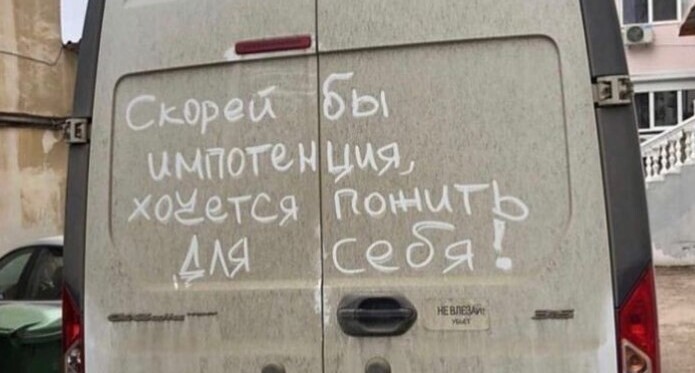 Скорей бы
импотенция,
хочется пожить
для себя!
НЕ ВЛЕЗАЙ!
УБЬЕТ